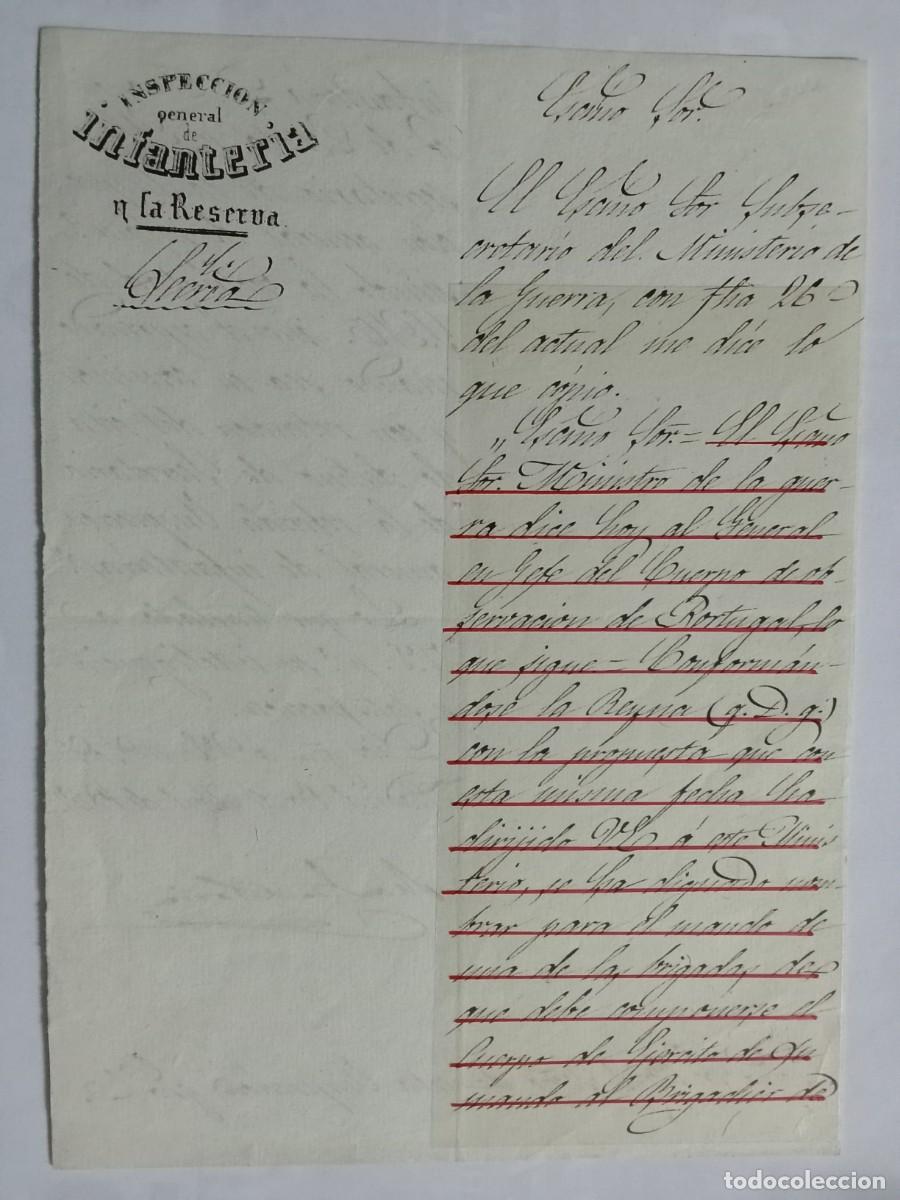 INSPECCION
general
de
infanteria
y la Reserva.
Secria
Escmo Sor.
El Escmo Sor Subse-
cretario del Ministerio de
la Guerra, con fha 26
del actual me dice lo
que cópio.
"Escmo Sor.= El Escmo
Sor. Ministro de la guer-
ra dice hoy al General
en Gefe del Cuerpo de ob-
servacion de Portugal, lo
que sigue= Conformán-
dose la Reyna (q. D. g.)
con la propuesta que con
esta misma fecha ha
dirijido VE á este Minis
terio, se ha dignado nom-
brar para el mando de
una de las brigadas de
que debe componerse el
Cuerpo de Ejército de su
mando al Brigadier D
todocoleccion
todocoleccion.net